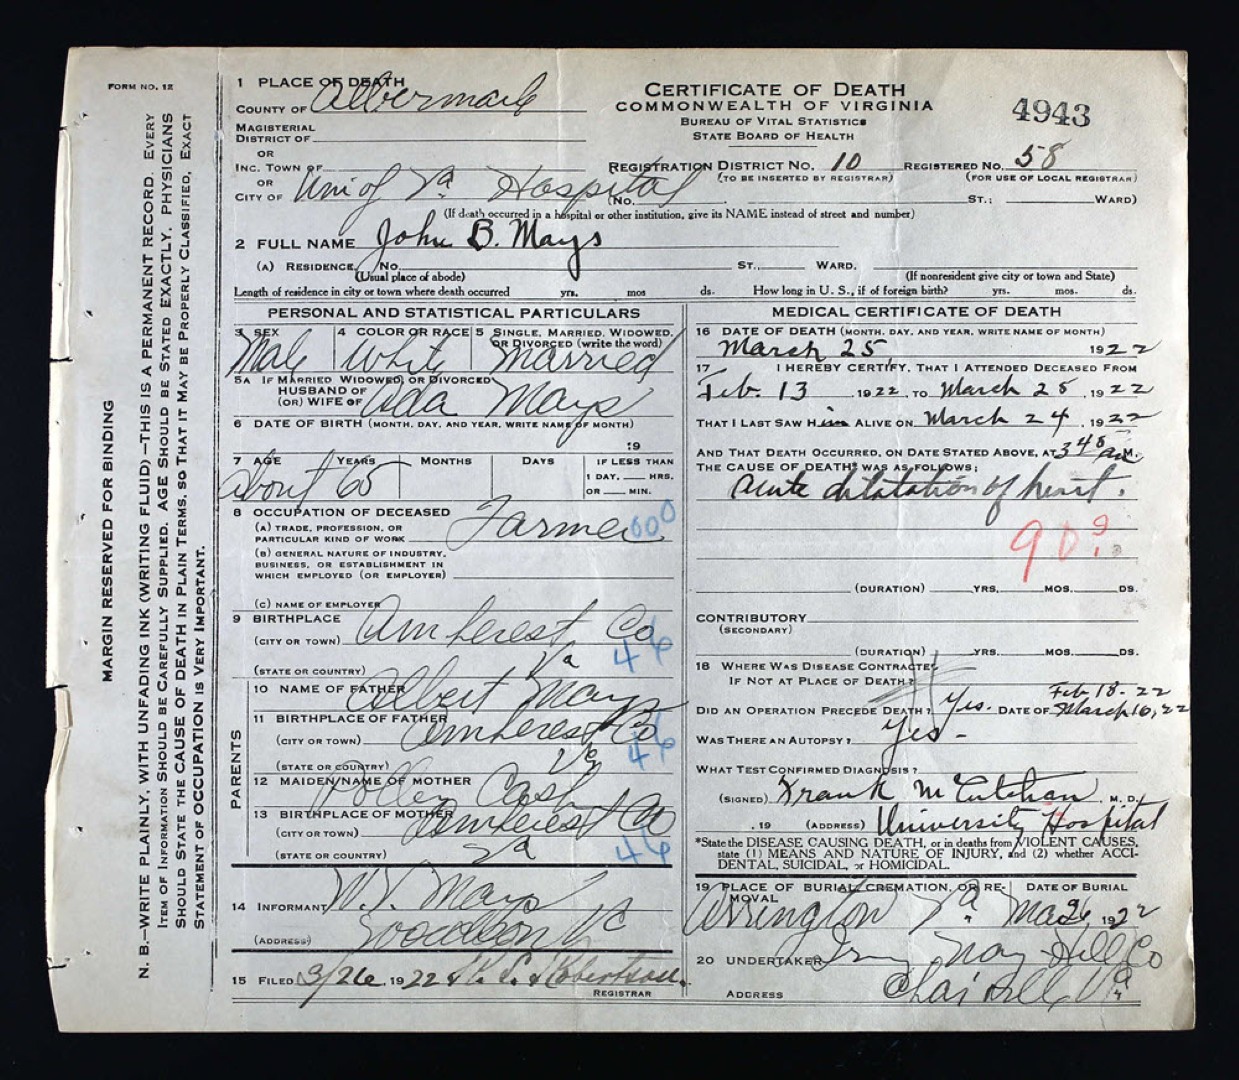 FORM NO. 12
MARGIN RESERVED FOR BINDING
N. B.—WRITE PLAINLY, WITH UNFADING INK (WRITING FLUID)—THIS IS A PERMANENT RECORD. EVERY
ITEM OF INFORMATION SHOULD BE CAREFULLY SUPPLIED. AGE SHOULD BE STATED EXACTLY. PHYSICIANS
SHOULD STATE THE CAUSE OF DEATH IN PLAIN TERMS, SO THAT IT MAY BE PROPERLY CLASSIFIED, EXACT
STATEMENT OF OCCUPATION IS VERY IMPORTANT.
CERTIFICATE OF DEATH
COMMONWEALTH OF VIRGINIA
BUREAU OF VITAL STATISTICS
STATE BOARD OF HEALTH
4943
1 PLACE OF DEATH
COUNTY OF Albermarle
MAGISTERIAL
DISTRICT OF
OR
INC. TOWN OF
OR
CITY OF Uni of Va Hospital
REGISTRATION DISTRICT NO. 10 REGISTERED NO. 58
(TO BE INSERTED BY REGISTRAR) (FOR USE OF LOCAL REGISTRAR)
(NO. ST.; WARD)
(If death occurred in a hospital or other institution, give its NAME instead of street and number)
2 FULL NAME John B. Mays
(A) RESIDENCE, No. ST., WARD,
(Usual place of abode) (If nonresident give city or town and State)
Length of residence in city or town where death occurred yrs. mos ds. How long in U. S., if of foreign birth? yrs. mos. ds.
PERSONAL AND STATISTICAL PARTICULARS
3 SEX 4 COLOR OR RACE 5 SINGLE, MARRIED, WIDOWED,
OR DIVORCED (write the word)
Male White Married
5A IF MARRIED WIDOWED, OR DIVORCED
HUSBAND OF
(OR) WIFE OF Ada Mays
6 DATE OF BIRTH (MONTH, DAY, AND YEAR, WRITE NAME OF MONTH)
19
7 AGE YEARS MONTHS DAYS IF LESS THAN
1 DAY, HRS.
OR MIN.
About 65
8 OCCUPATION OF DECEASED
(A) TRADE, PROFESSION, OR
PARTICULAR KIND OF WORK Farmer 000
(B) GENERAL NATURE OF INDUSTRY,
BUSINESS, OR ESTABLISHMENT IN
WHICH EMPLOYED (OR EMPLOYER)
(C) NAME OF EMPLOYER
9 BIRTHPLACE
(CITY OR TOWN) Amherest Co
(STATE OR COUNTRY) Va 46
PARENTS
10 NAME OF FATHER Albert Mays
11 BIRTHPLACE OF FATHER
(CITY OR TOWN) Amherest Co
(STATE OR COUNTRY) Va 46
12 MAIDEN NAME OF MOTHER Polley Cash
13 BIRTHPLACE OF MOTHER
(CITY OR TOWN) Amherest Co
(STATE OR COUNTRY) Va 46
14 INFORMANT Mays
(ADDRESS)
15 FILED 3/26, 1922 Robertson.
REGISTRAR
MEDICAL CERTIFICATE OF DEATH
16 DATE OF DEATH (MONTH, DAY, AND YEAR, WRITE NAME OF MONTH)
March 25, 1922
17 I HEREBY CERTIFY, THAT I ATTENDED DECEASED FROM
Feb. 13, 1922, TO March 25, 1922
THAT I LAST SAW HIM ALIVE ON March 24, 1922
AND THAT DEATH OCCURRED, ON DATE STATED ABOVE, AT 3 45 am M.
THE CAUSE OF DEATH* WAS AS FOLLOWS:
Acute dilatation of heart.
90
(DURATION) YRS. MOS. DS.
CONTRIBUTORY
(SECONDARY)
(DURATION) YRS. MOS. DS.
18 WHERE WAS DISEASE CONTRACTED
IF NOT AT PLACE OF DEATH?
Feb 18-22
DID AN OPERATION PRECEDE DEATH? Yes. DATE OF March 16, 22
WAS THERE AN AUTOPSY? Yes-
WHAT TEST CONFIRMED DIAGNOSIS?
(SIGNED) Frank McCutchan, M. D.
, 19 (ADDRESS) University Hospital
*State the DISEASE CAUSING DEATH, or in deaths from VIOLENT CAUSES,
state (1) MEANS AND NATURE OF INJURY, and (2) whether ACCI-
DENTAL, SUICIDAL, or HOMICIDAL.
19 PLACE OF BURIAL, CREMATION, OR RE-
MOVAL
DATE OF BURIAL
Arrington Va. Ma 26 1922
20 UNDERTAKER Hill Co
ADDRESS Va.